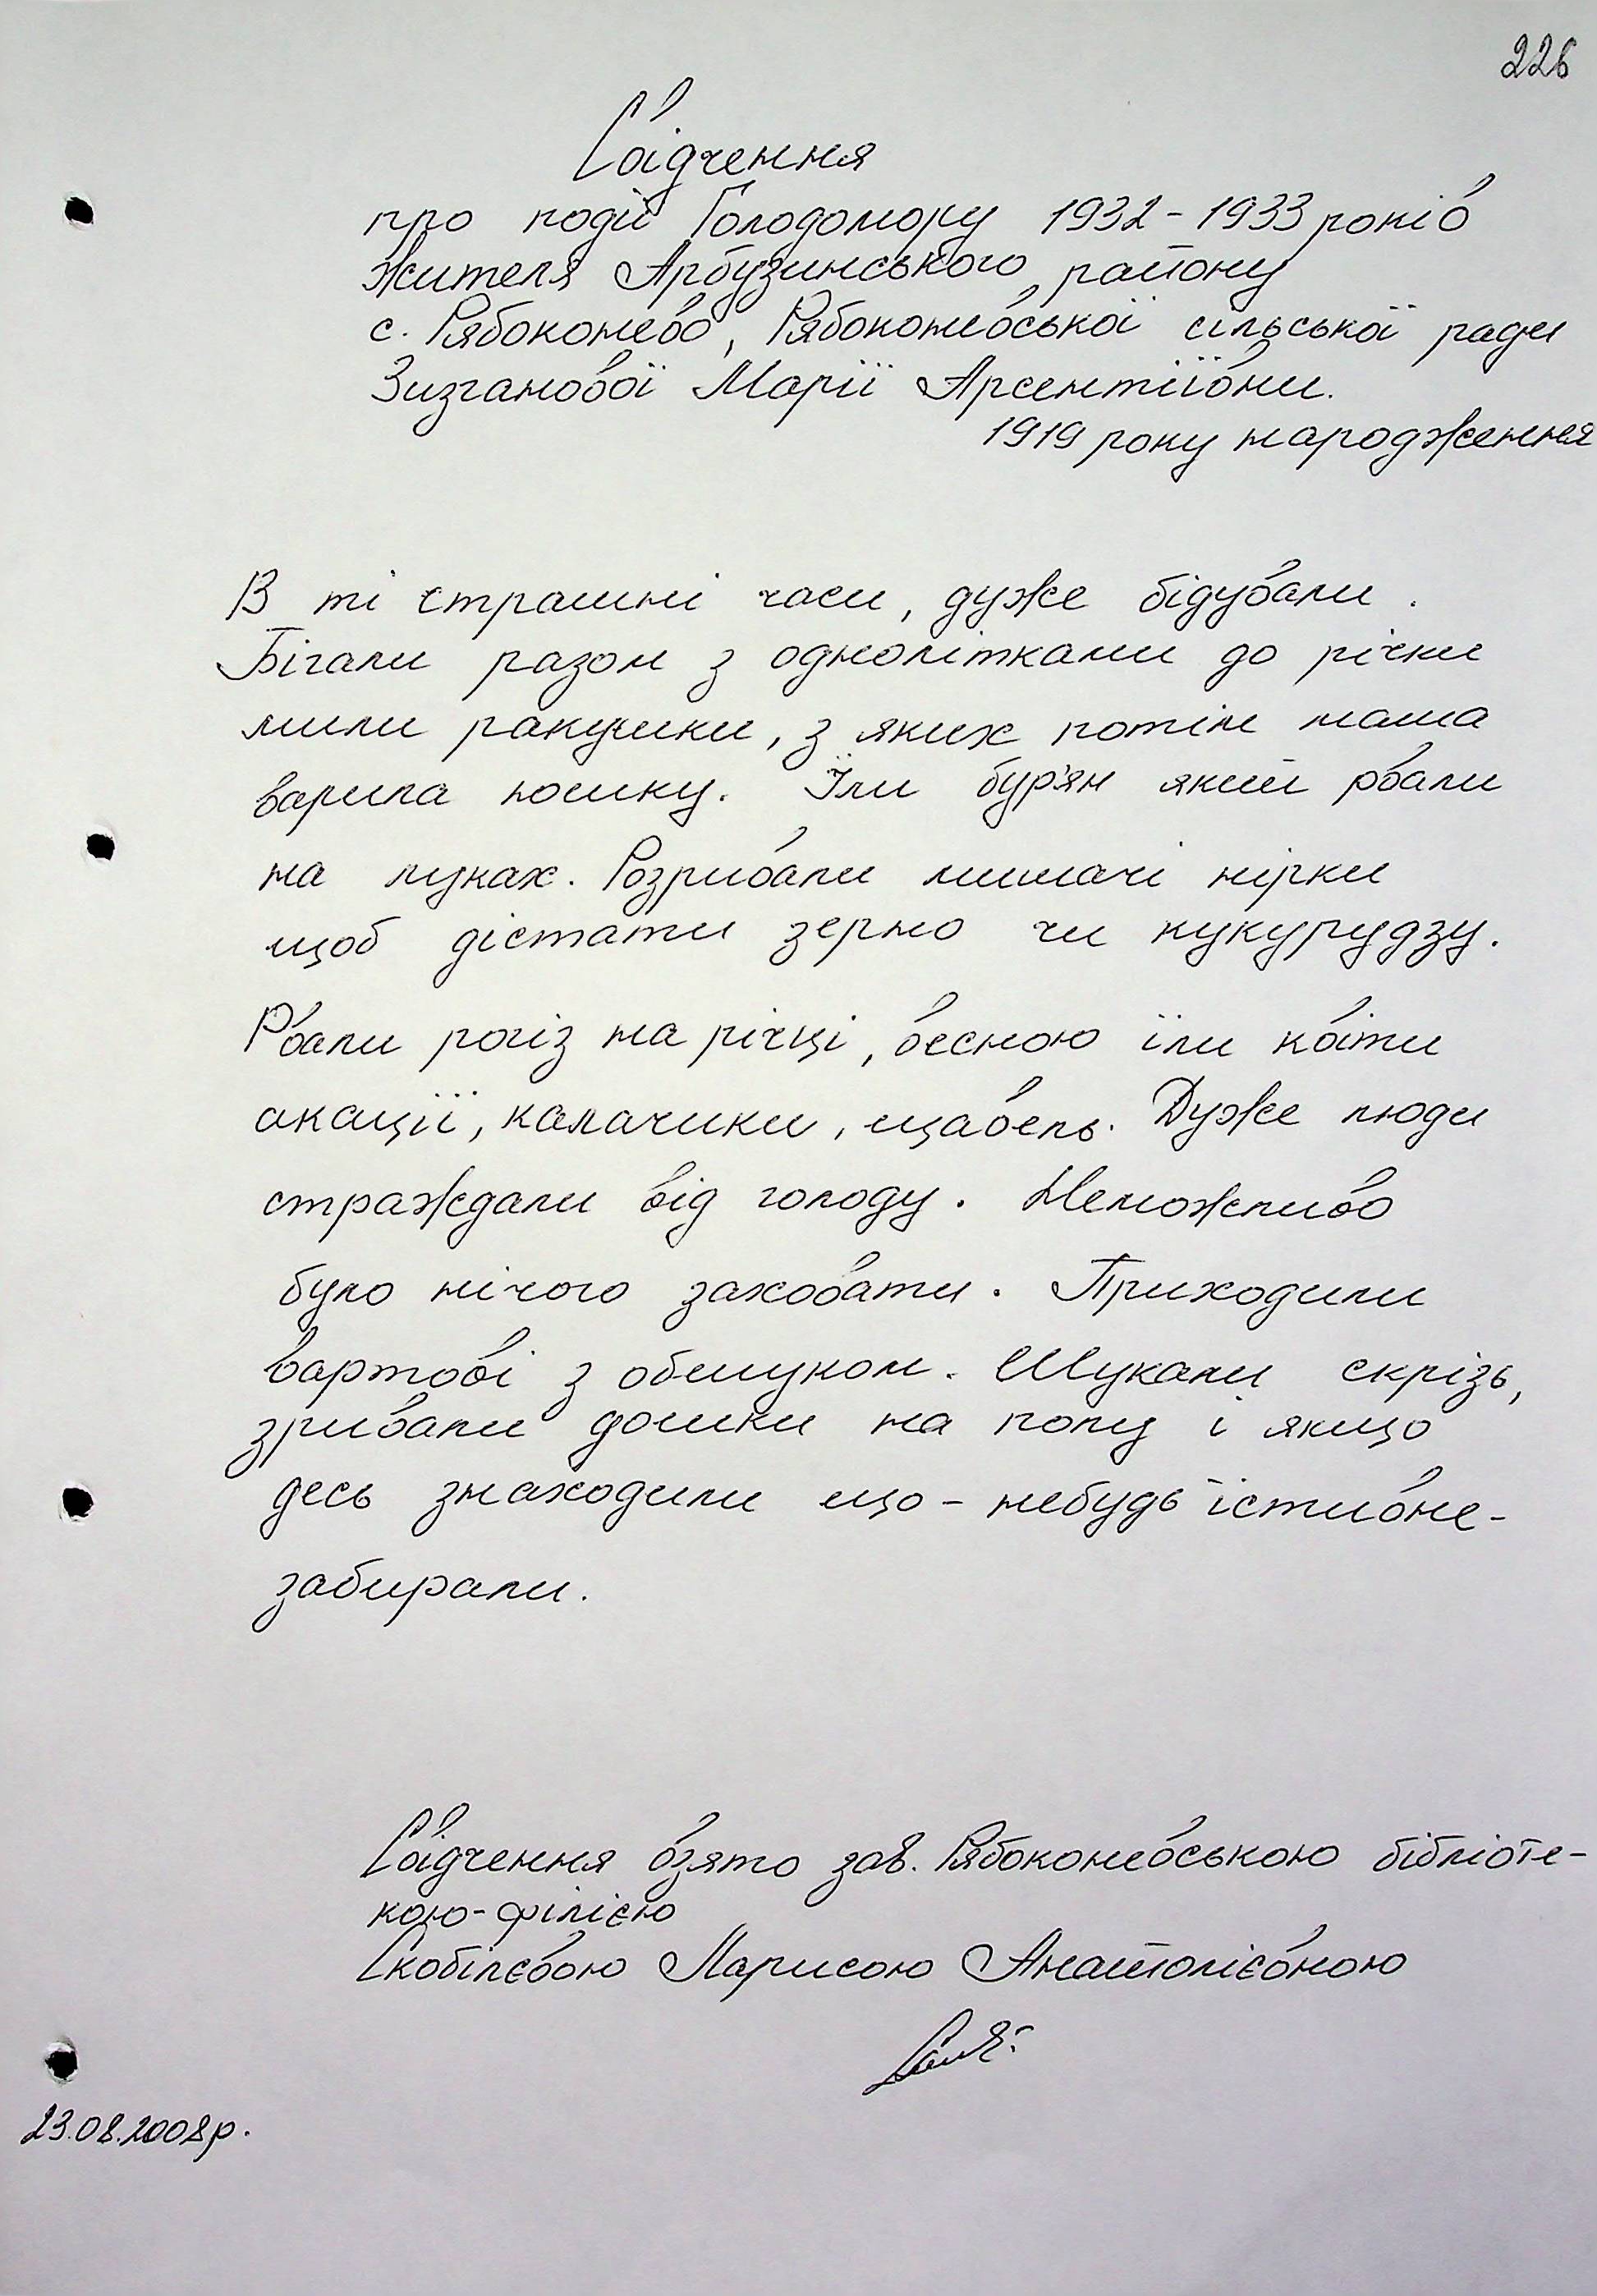 226
Свідчення
про події Голодомору 1932-1933 років
жителя Арбузинського району
с. Рябоконево, Рябоконевської сільської ради
Зизганової Марії Арсентіївни.
1919 року народження
В ті страшні часи, дуже бідували.
Бігали разом з однолітками до річки
мили ракушки, з яких потім мама
варила юшку. Їли бур'ян який рвали
на луках. Розривали мишачі нірки
щоб дістати зерно чи кукурудзу.
Рвали рогіз на річці, весною їли квіти
акації, калачики, щавель. Дуже люди
страждали від голоду. Неможливо
було нічого заховати. Приходили
вартові з обшуком. Шукали скрізь,
зривали дошки на полу і якщо
десь знаходили що-небудь їстивне-
забирали.
Свідчення взято зав. Рябоконевською бібліоте-
кою-філією
Скобілєвою Ларисою Анатолієвною
23.08.2008р.